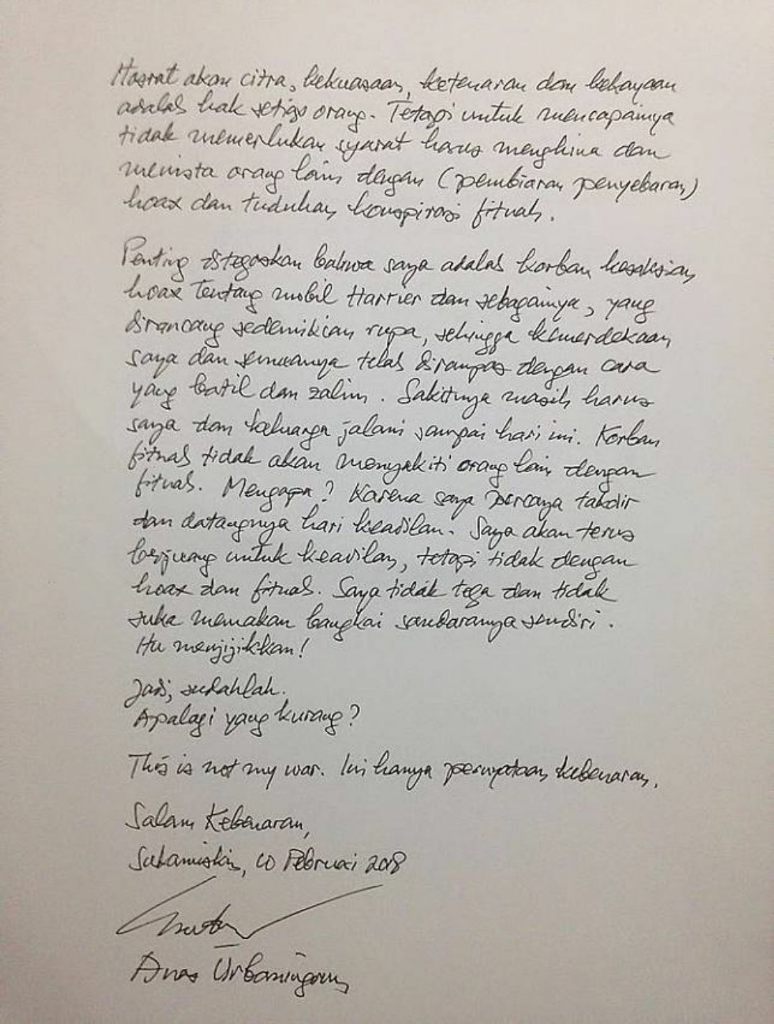 Hasrat akan citra, kekuasaan, ketenaran dan kekayaan
adalah hak setiap orang. Tetapi untuk mencapainya
tidak memerlukan syarat harus menghina dan
menista orang lain dengan (pembiaran penyebaran)
hoax dan tuduhan konspirasi fitnah.
Penting ditegaskan bahwa saya adalah korban kesaksian
hoax tentang mobil Harrier dan sebagainya, yang
dirancang sedemikian rupa, sehingga kemerdekaan
saya dan semuanya telah dirampas dengan cara
yang batil dan zalim. Sakitnya masih harus
saya dan keluarga jalani sampai hari ini. Korban
fitnah tidak akan menyakiti orang lain dengan
fitnah. Mengapa? Karena saya percaya takdir
dan datangnya hari keadilan. Saya akan terus
berjuang untuk keadilan, tetapi tidak dengan
hoax dan fitnah. Saya tidak tega dan tidak
suka memakan bangkai saudaranya sendiri.
Itu menjijikkan!
Jadi, sudahlah.
Apalagi yang kurang?
This is not my war. Ini hanya pernyataan kebenaran.
Salam Kebenaran,
Sukamiskin, 10 Februari 2018
Anas Urbaningrum